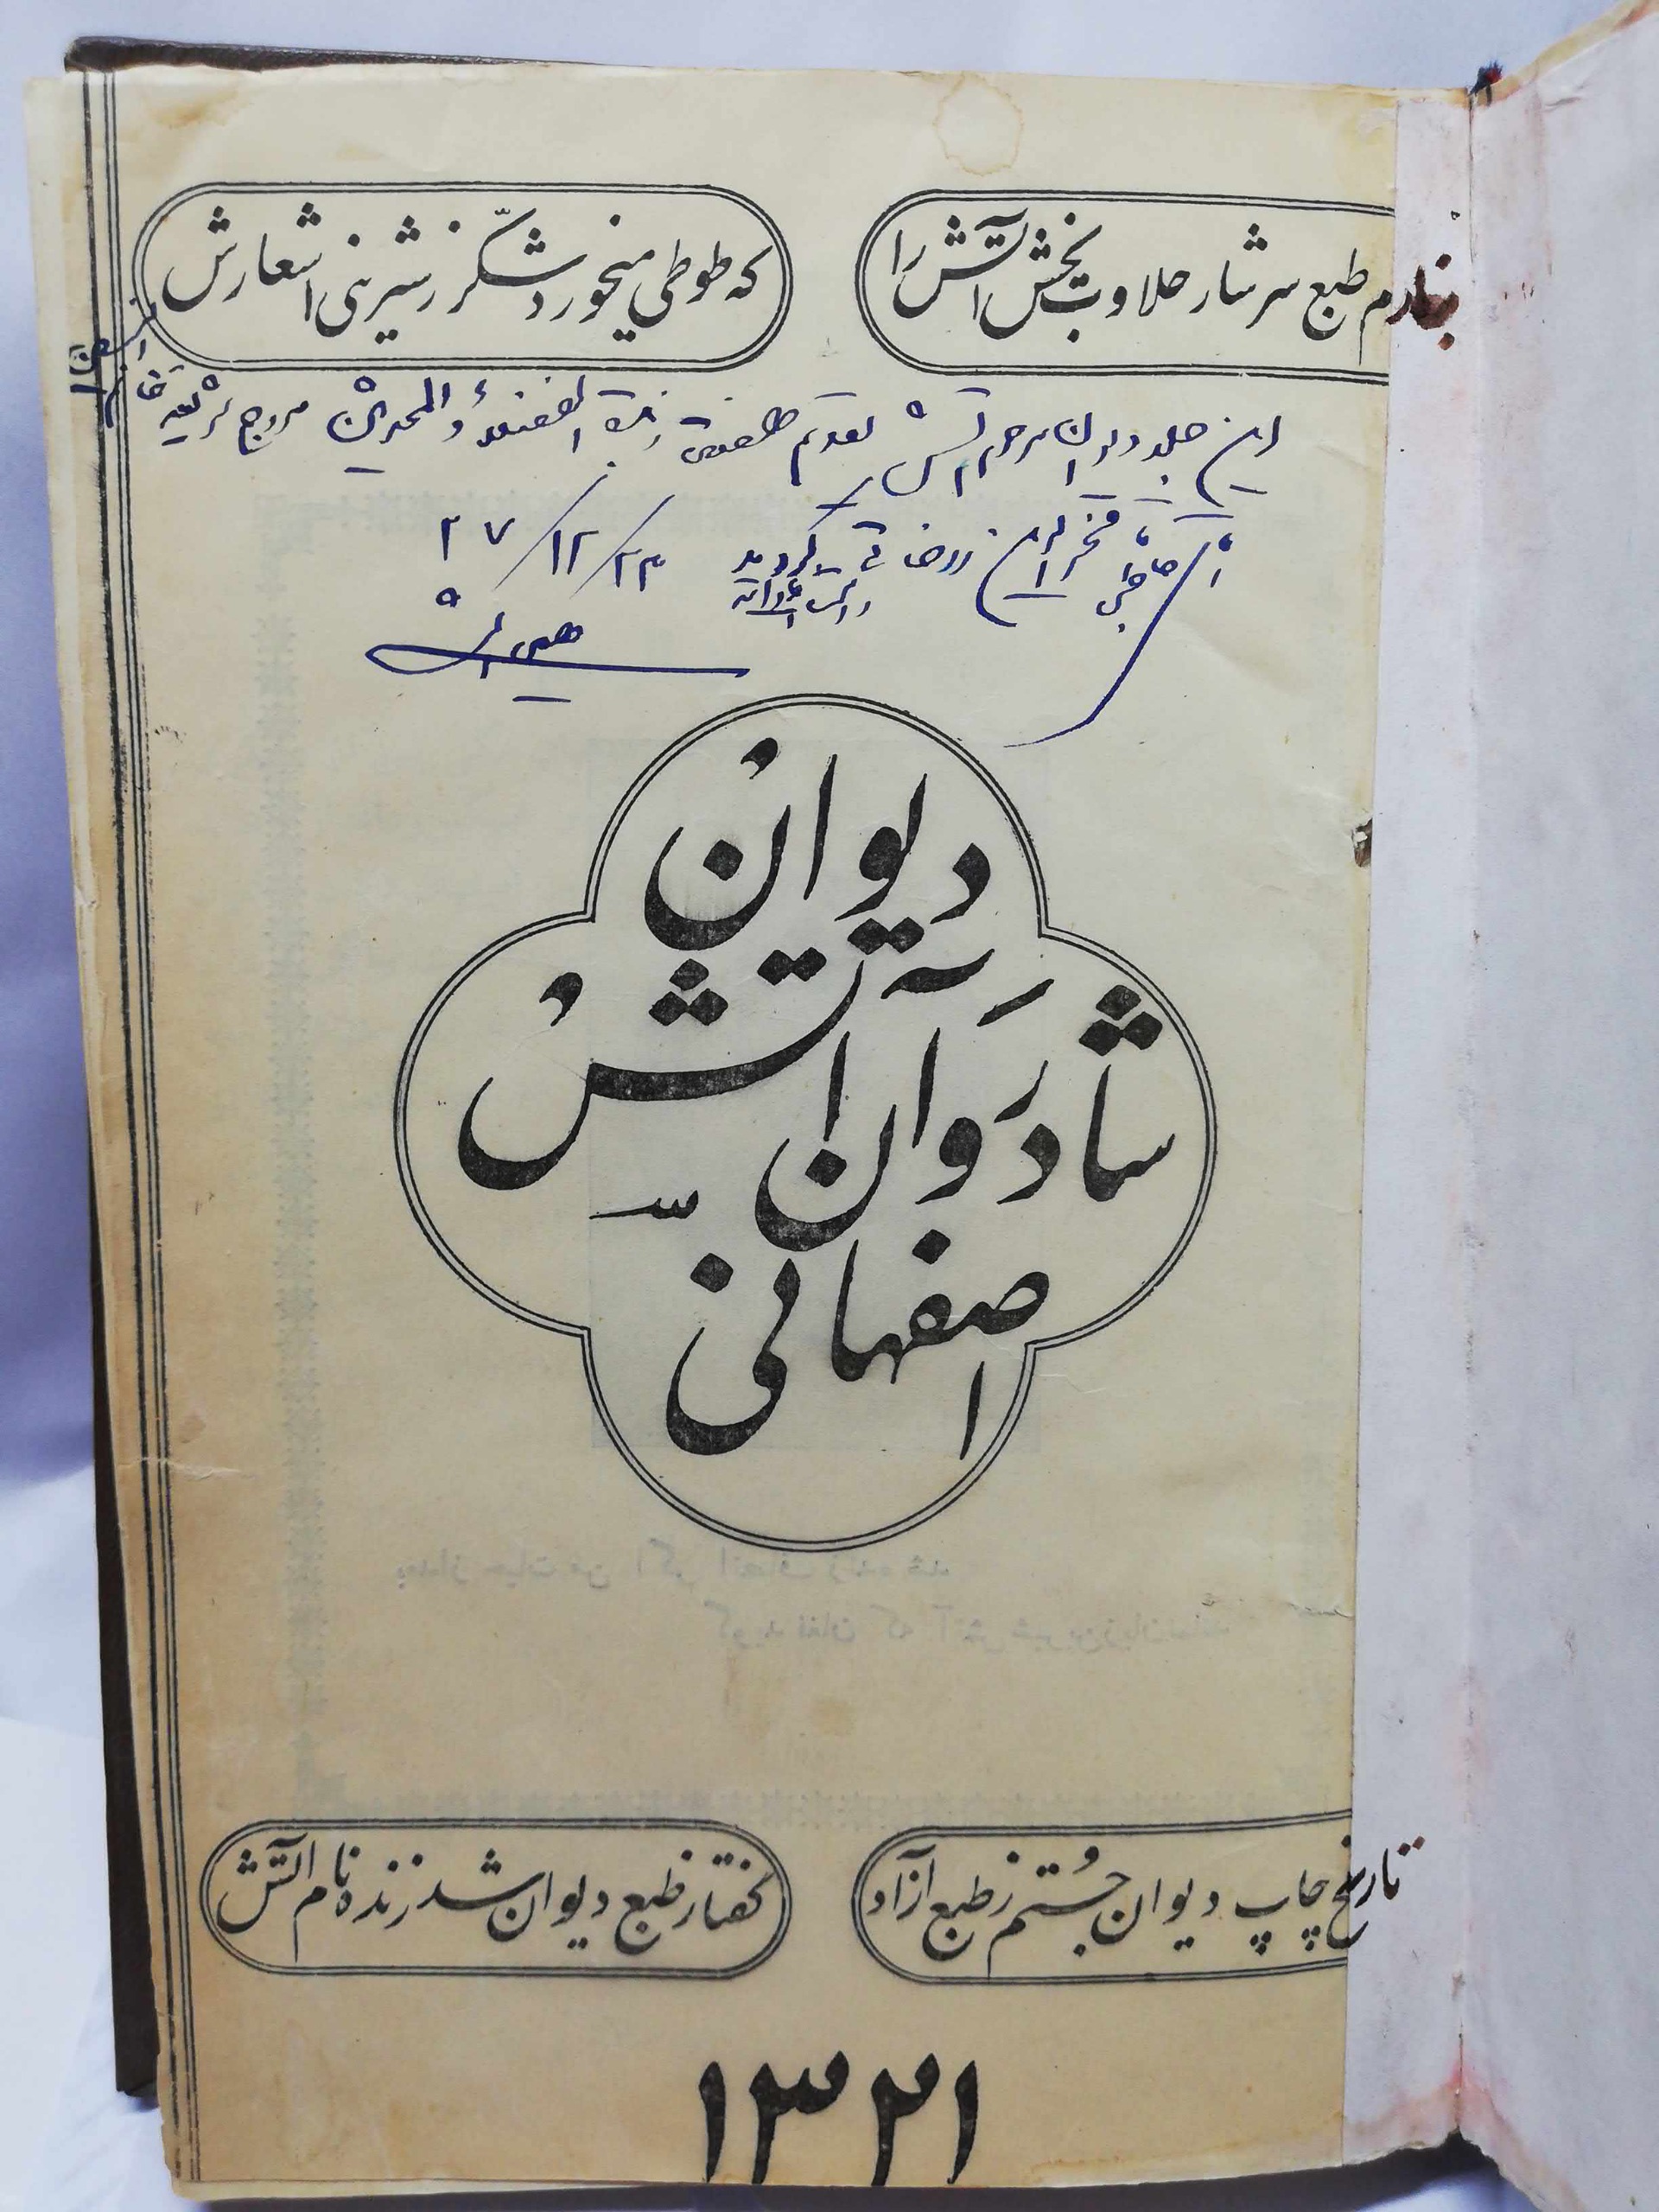 بنازم طبع سرشار حلاوت بخش آتش را
که طوطی میخورد شکّر ز شیرینی اشعارش
این جلد دیوان مرحوم آتش تقدیم حضور زبدة الفضلاء و المحدثین مروج شریعت خاتم
آقای حاجی فخرالدین گردید ۲۷/۱۲/۲۳
دیوان
شادروان آتش
اصفهانی
تاریخ چاپ دیوان جستم ز طبع آزاد
گفتا ز طبع دیوان شد زنده نام آتش
۱۳۲۱